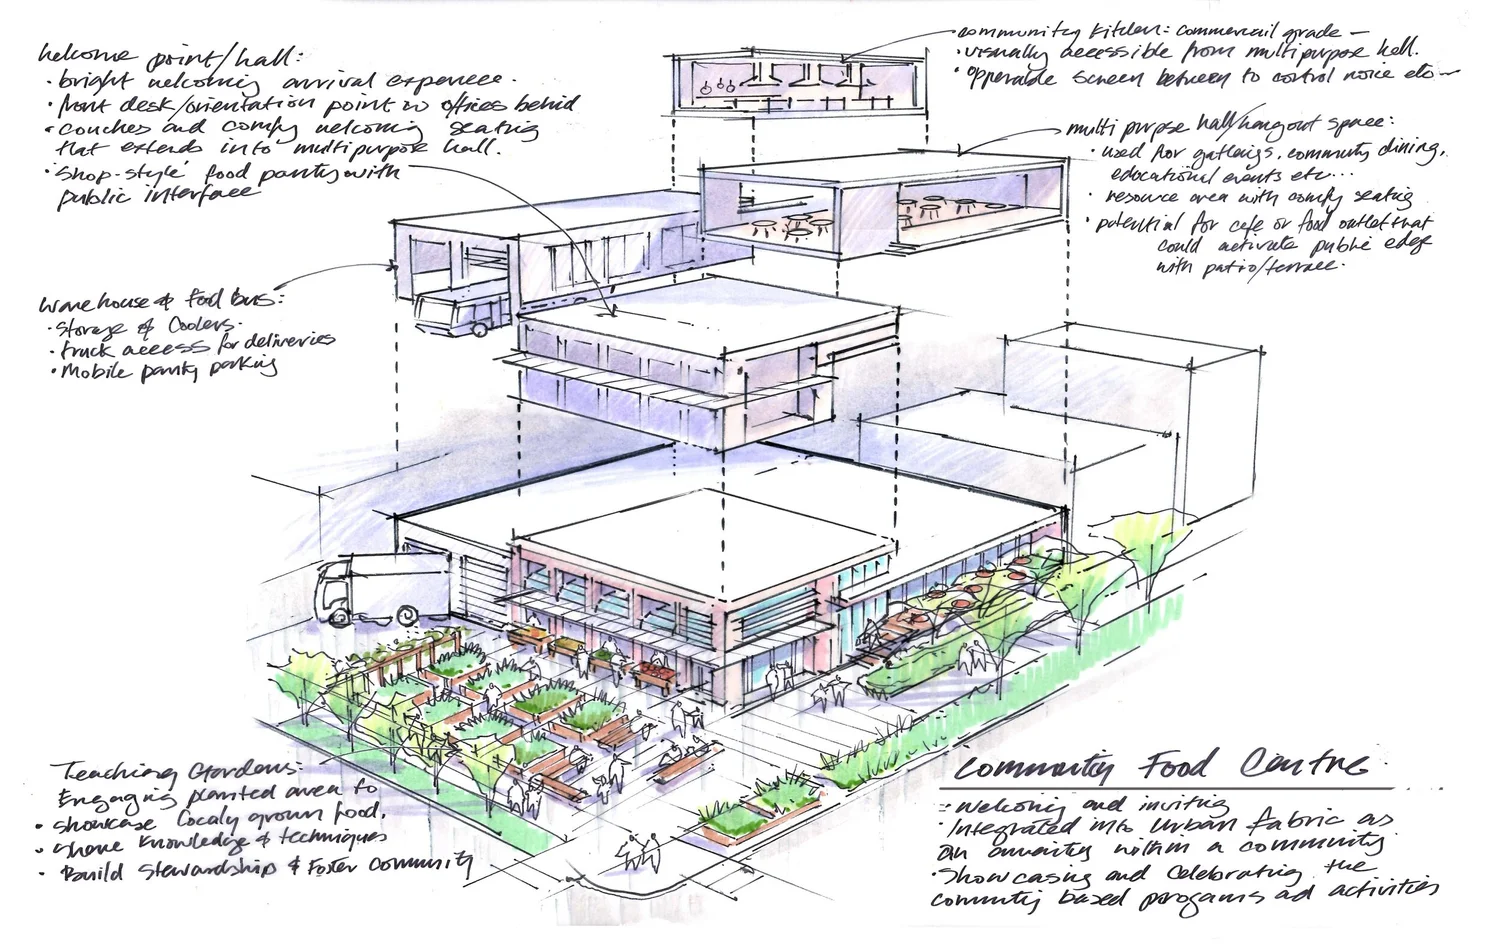 welcome point/hall:
· bright welcoming arrival experience.
· front desk/orientation point w offices behind
· couches and comfy welcoming seating
that extends into multipurpose hall.
· 'shop-style' food pantry with
public interface
community kitchen: commercial grade –
· visually accessible from multipurpose hall.
· opperable screen between to control noice etc –
multi purpose hall/hangout space:
· used for gatherings, community dining,
educational events etc...
· resource area with comfy seating
· potential for cafe or food outlet that
could activate public edge
with patio/terrace.
warehouse & food bus:
· Storage & Coolers.
· truck access for deliveries
· Mobile pantry parking
Teaching Gardens:
Engaging planted area to
· showcase localy grown food.
· share knowledge & techniques
· Build Stewardship & Foster community
Community Food Centre.
· Welcoming and inviting
· Integrated into Urban Fabric as
an amenity within a community
· Showcasing and Celebrating the
community based programs and activities